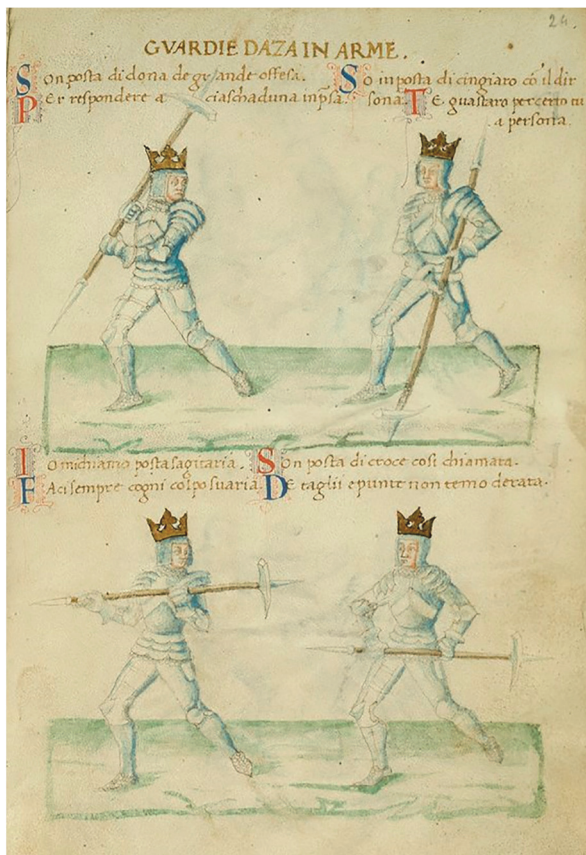 24.
GVARDIE DAZA IN ARME.
Son posta di dona de grande offesa.
Per respondere a ciaschaduna inpsa.
So in posta di cingiaro cō il dir
sona. Te guastaro per certo tu
a persona.
Io michiamo posta sagitaria.
Faci sempre cogni colpo suaria
Son posta di croce cosi chiamata.
De taglii e punte non temo derata.